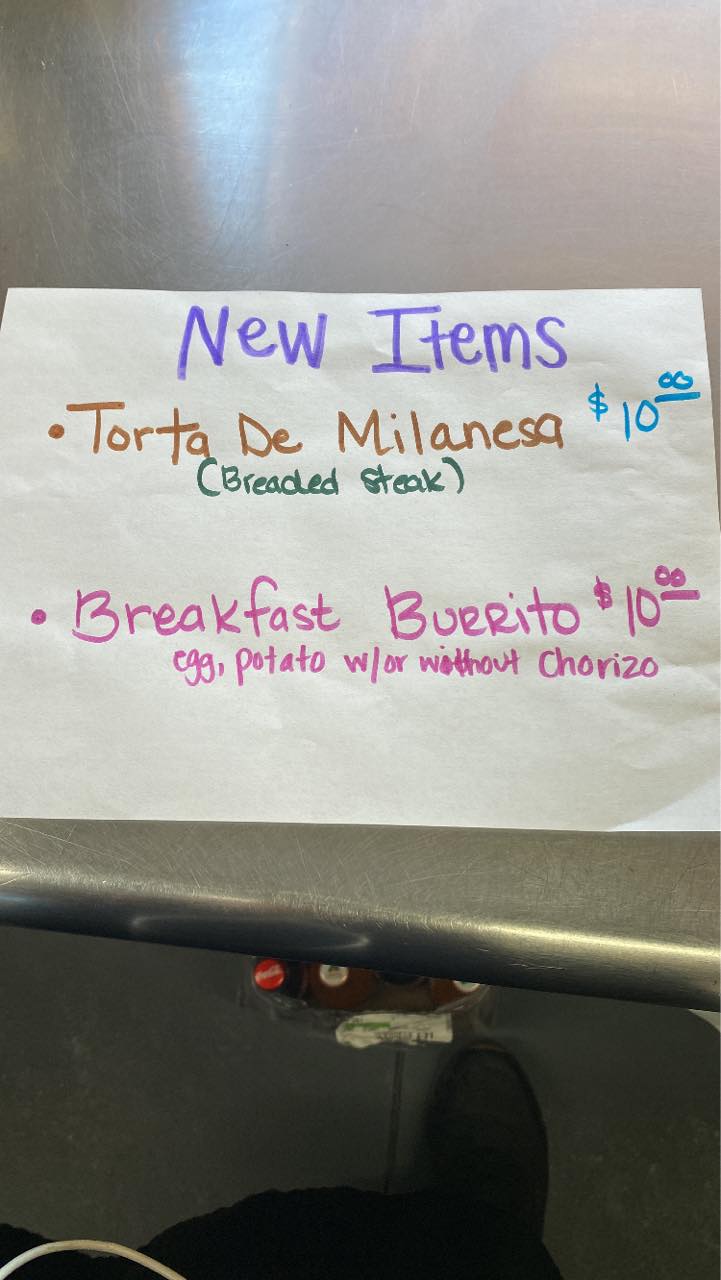 New Items
• Torta De Milanesa $10.00
(Breaded steak)
• Breakfast Burrito $10.00
egg, potato w/or without Chorizo